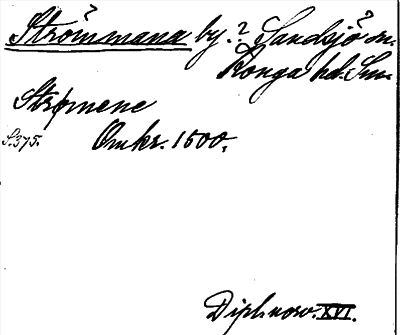 Strömmana by.? Sandsjö? sn.
Konga hd. Sm.
Strømene
S. 375. Omkr. 1500.
Dipl. norv. XVI.